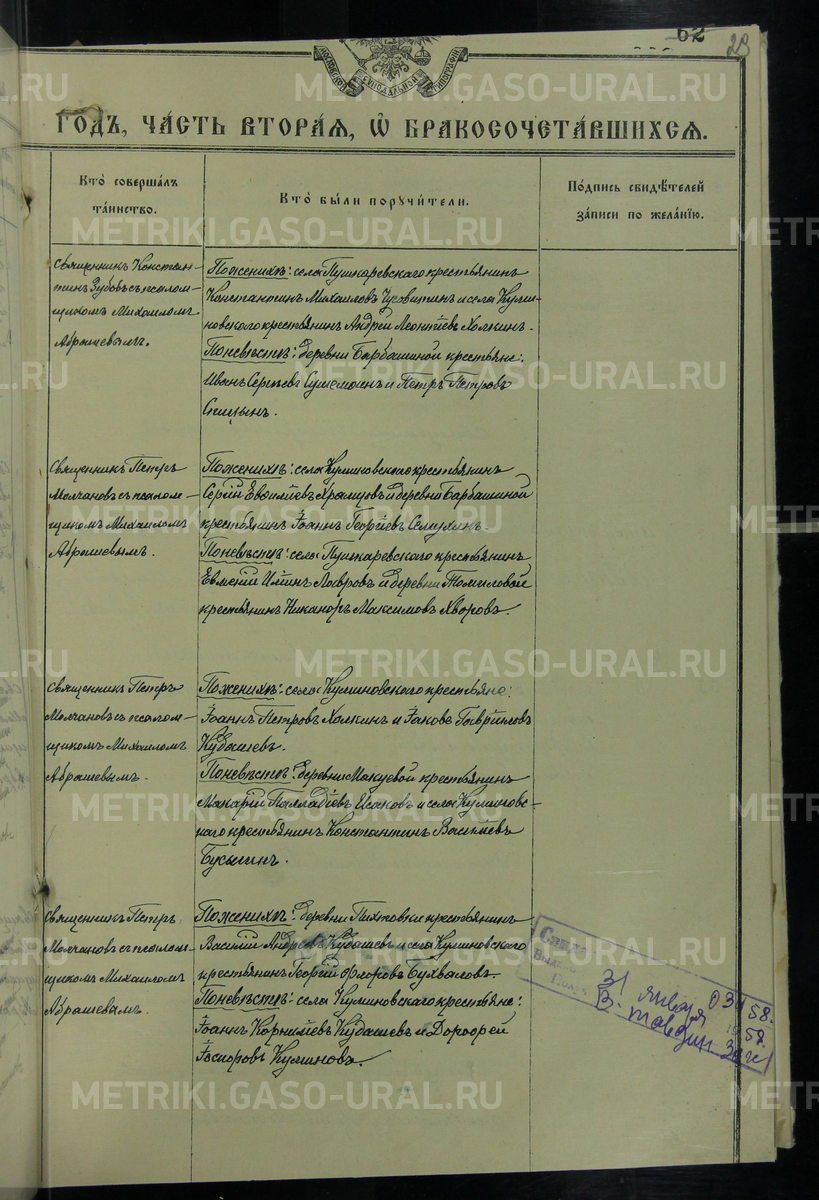 62
23
МОСКОВСКОЙ СѴНОДАЛЬНОЙ ТИПОГРАФІИ
METRIKI.GASO-URAL.RU
ГОДЪ, ЧА́СТЬ ВТОРА́Я, Ѡ҆ БРАКОСОЧЕТА́ВШИХСЯ.
Кто̀ соверша́лъ
та́инство.
Кто̀ бы́ли поручи́тели.
По́дпись свидѣ́телей
за́писи по жела́нію.
METRIKI.GASO-URAL.RU
Священникъ Констан-
тинъ Зубовъ съ псалом-
щикомъ Михаиломъ
Абрашевымъ.
По женихѣ: села Пушкаревскаго крестьянинъ
Константинъ Михаиловъ и села Кули-
новскаго крестьянинъ Андрей Леонтіевъ Холкинъ.
По невѣстѣ: деревни Барбашиной крестьяне:
Иванъ Сергѣевъ и Петръ Петровъ
Спицынъ.
METRIKI.GASO-URAL.RU
Священникъ Петръ
Молчановъ съ псалом-
щикомъ Михаиломъ
Абрашевымъ.
По женихѣ: села Кулиновскаго крестьянинъ
Сергій Храмцовъ и деревни Барбашиной
крестьянинъ Іоаннъ Георгіевъ
По невѣстѣ: села Пушкаревскаго крестьянинъ
Евменій Ильинъ Лавровъ и деревни Томиловой
крестьянинъ Никаноръ Максимовъ Хворовъ.
METRIKI.GASO-URAL.RU
Священникъ Петръ
Молчановъ съ псалом-
щикомъ Михаиломъ
Абрашевымъ.
По женихѣ: села Кулиновскаго крестьяне:
Іоаннъ Петровъ Холкинъ и Іаковъ Гавриловъ
Кудашевъ.
По невѣстѣ: деревни Мокуевой крестьянинъ
Макарій Палладіевъ Исаковъ и села Кулиновс-
каго крестьянинъ Константинъ Васильевъ
Бусыгинъ.
METRIKI.GASO-URAL.RU
Священникъ Петръ
Молчановъ съ псалом-
щикомъ Михаиломъ
Абрашевымъ.
По женихѣ: деревни Пихтовки крестьянинъ
Василій Андреевъ Кудашевъ и села Кулиновскаго
крестьянинъ Георгій Флоровъ Бухваловъ.
По невѣстѣ: села Кулиновскаго крестьяне:
Іоаннъ Корниліевъ Кудашевъ и Дорофей
Кулиновъ.
31 января 1958.
METRIKI.GASO-URAL.RU